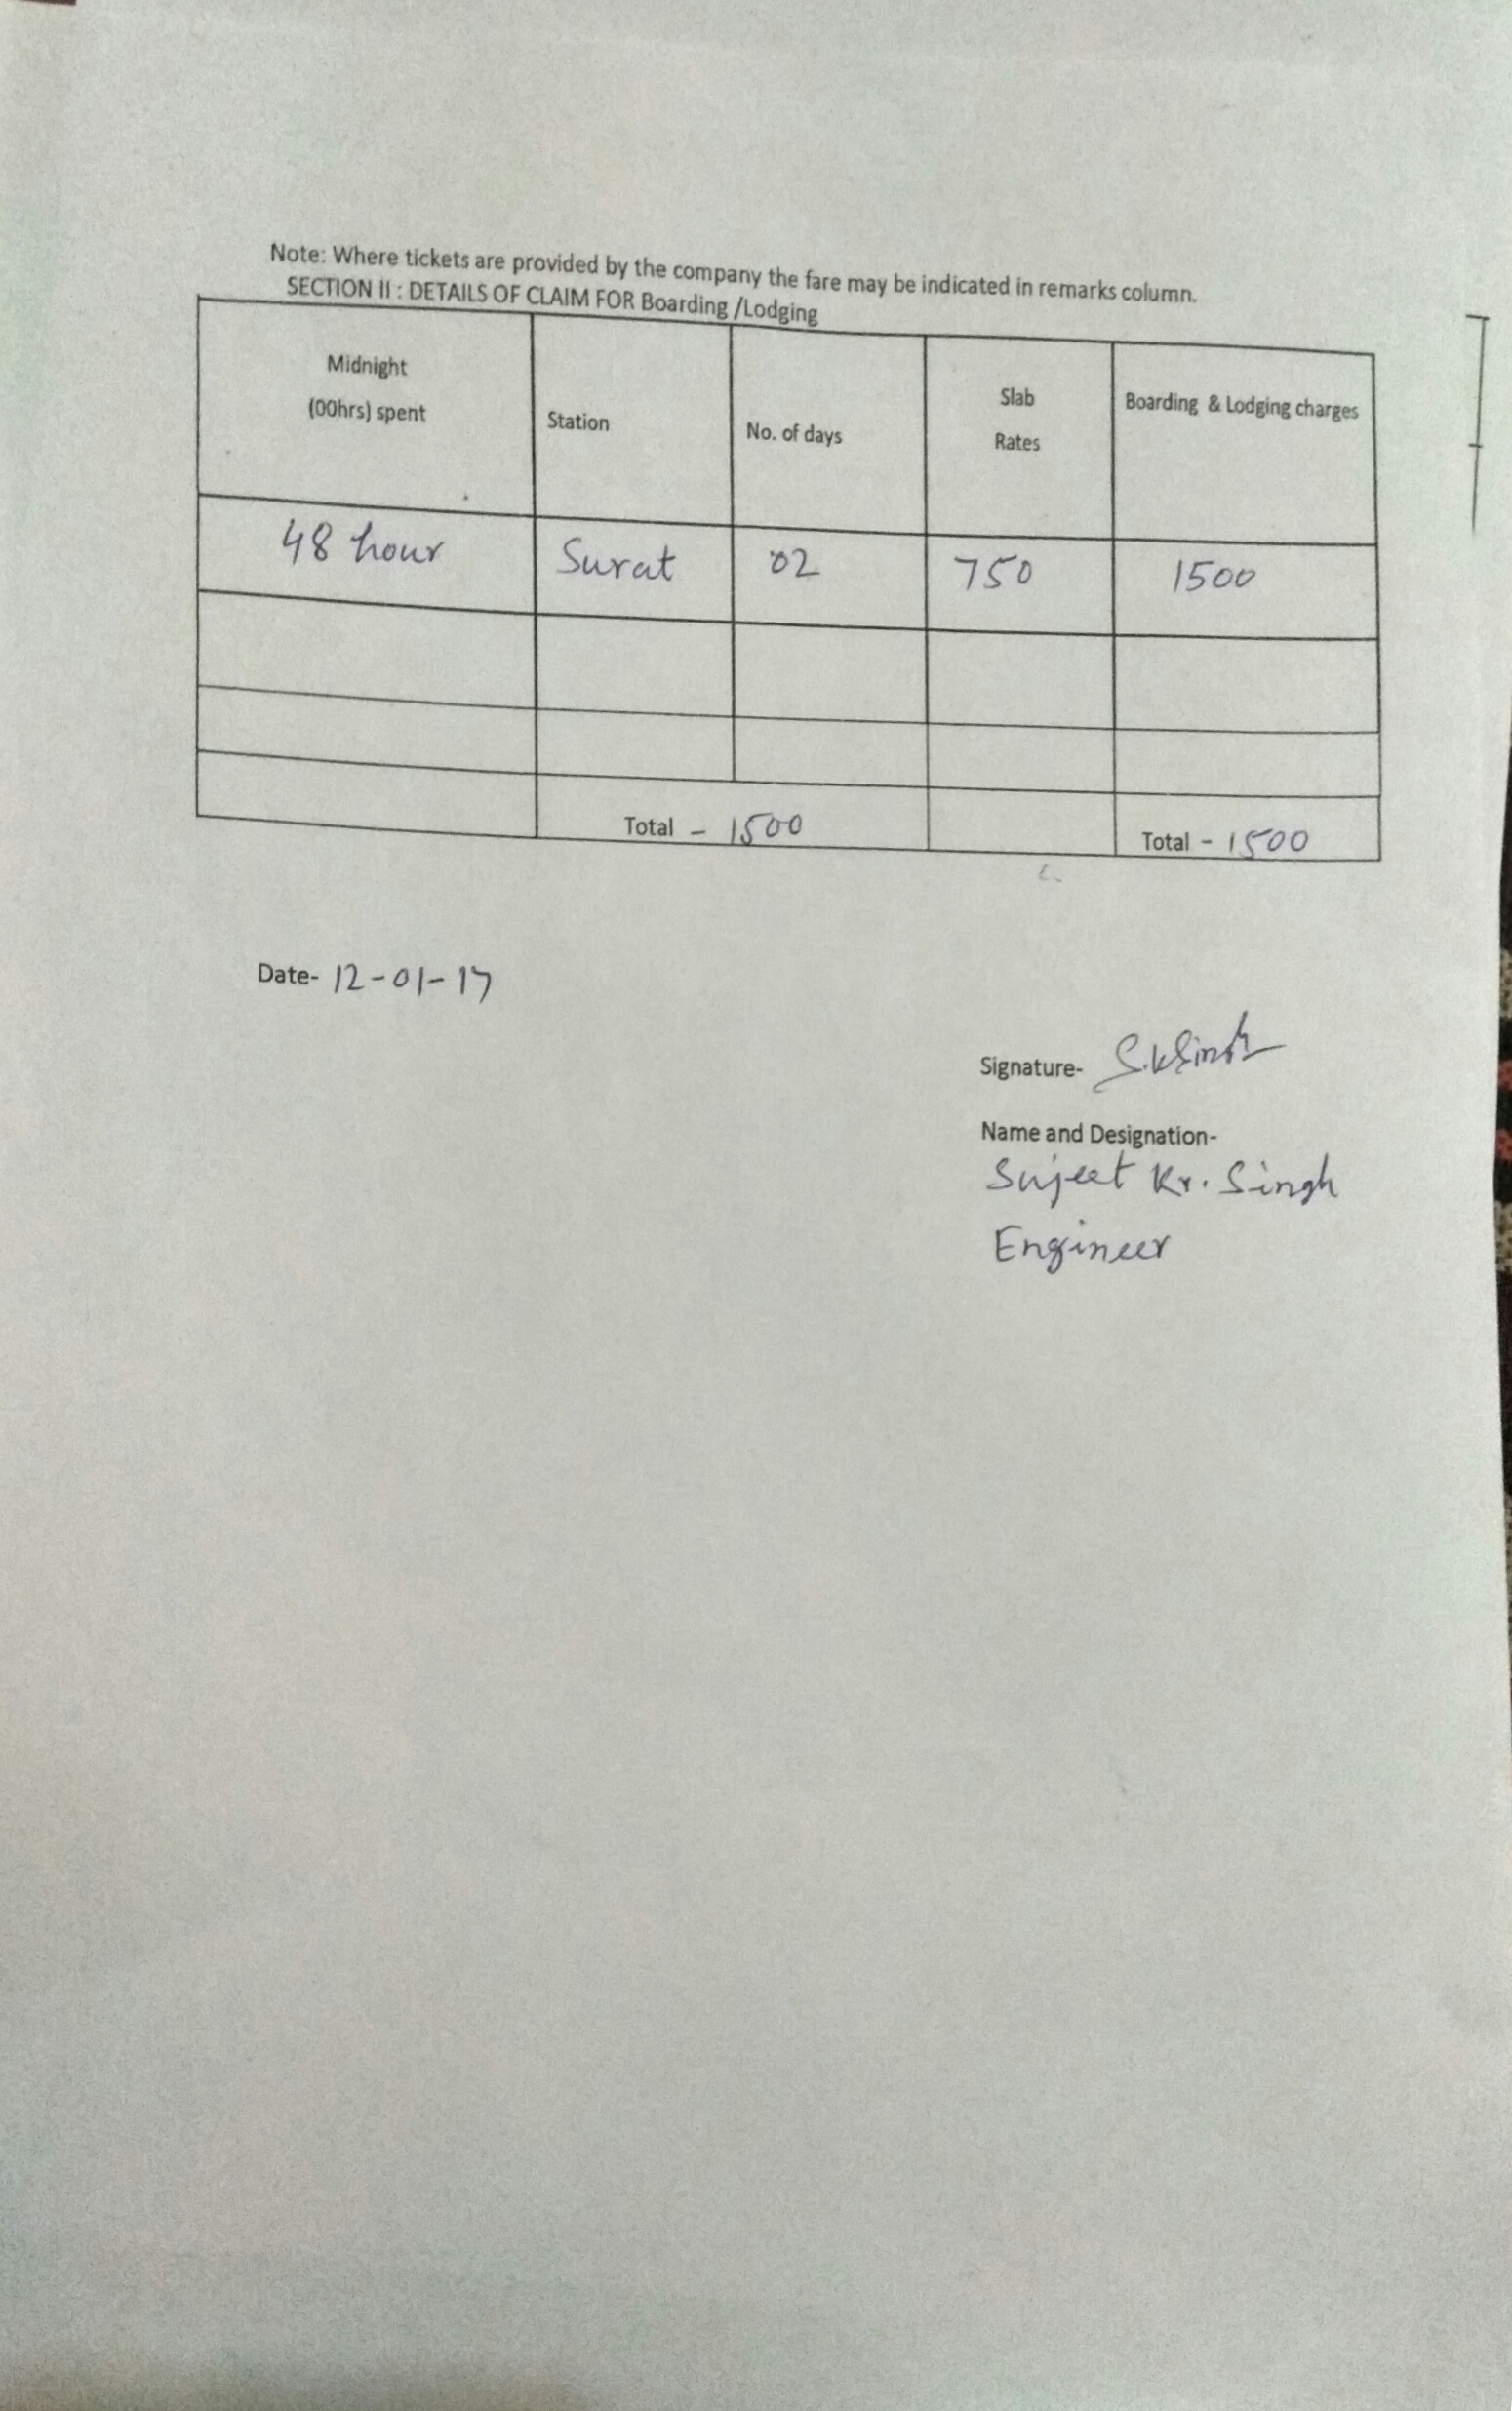 Note: Where tickets are provided by the company the fare may be indicated in remarks column.
SECTION II : DETAILS OF CLAIM FOR Boarding /Lodging
Midnight (00hrs) spent Station No. of days Slab Rates Boarding & Lodging charges
48 hour Surat 02 750 1500
Total - 1500 Total - 1500
Date- 12-01-17
Signature- S.K Singh
Name and Designation-
Sujeet Kr. Singh
Engineer